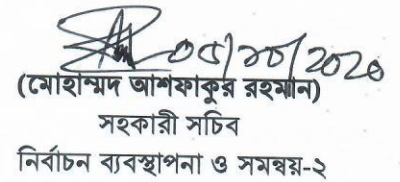 ০৫/১০/2020
(মোহাম্মদ আশফাকুর রহমান)
সহকারী সচিব
নির্বাচন ব্যবস্থাপনা ও সমন্বয়-২